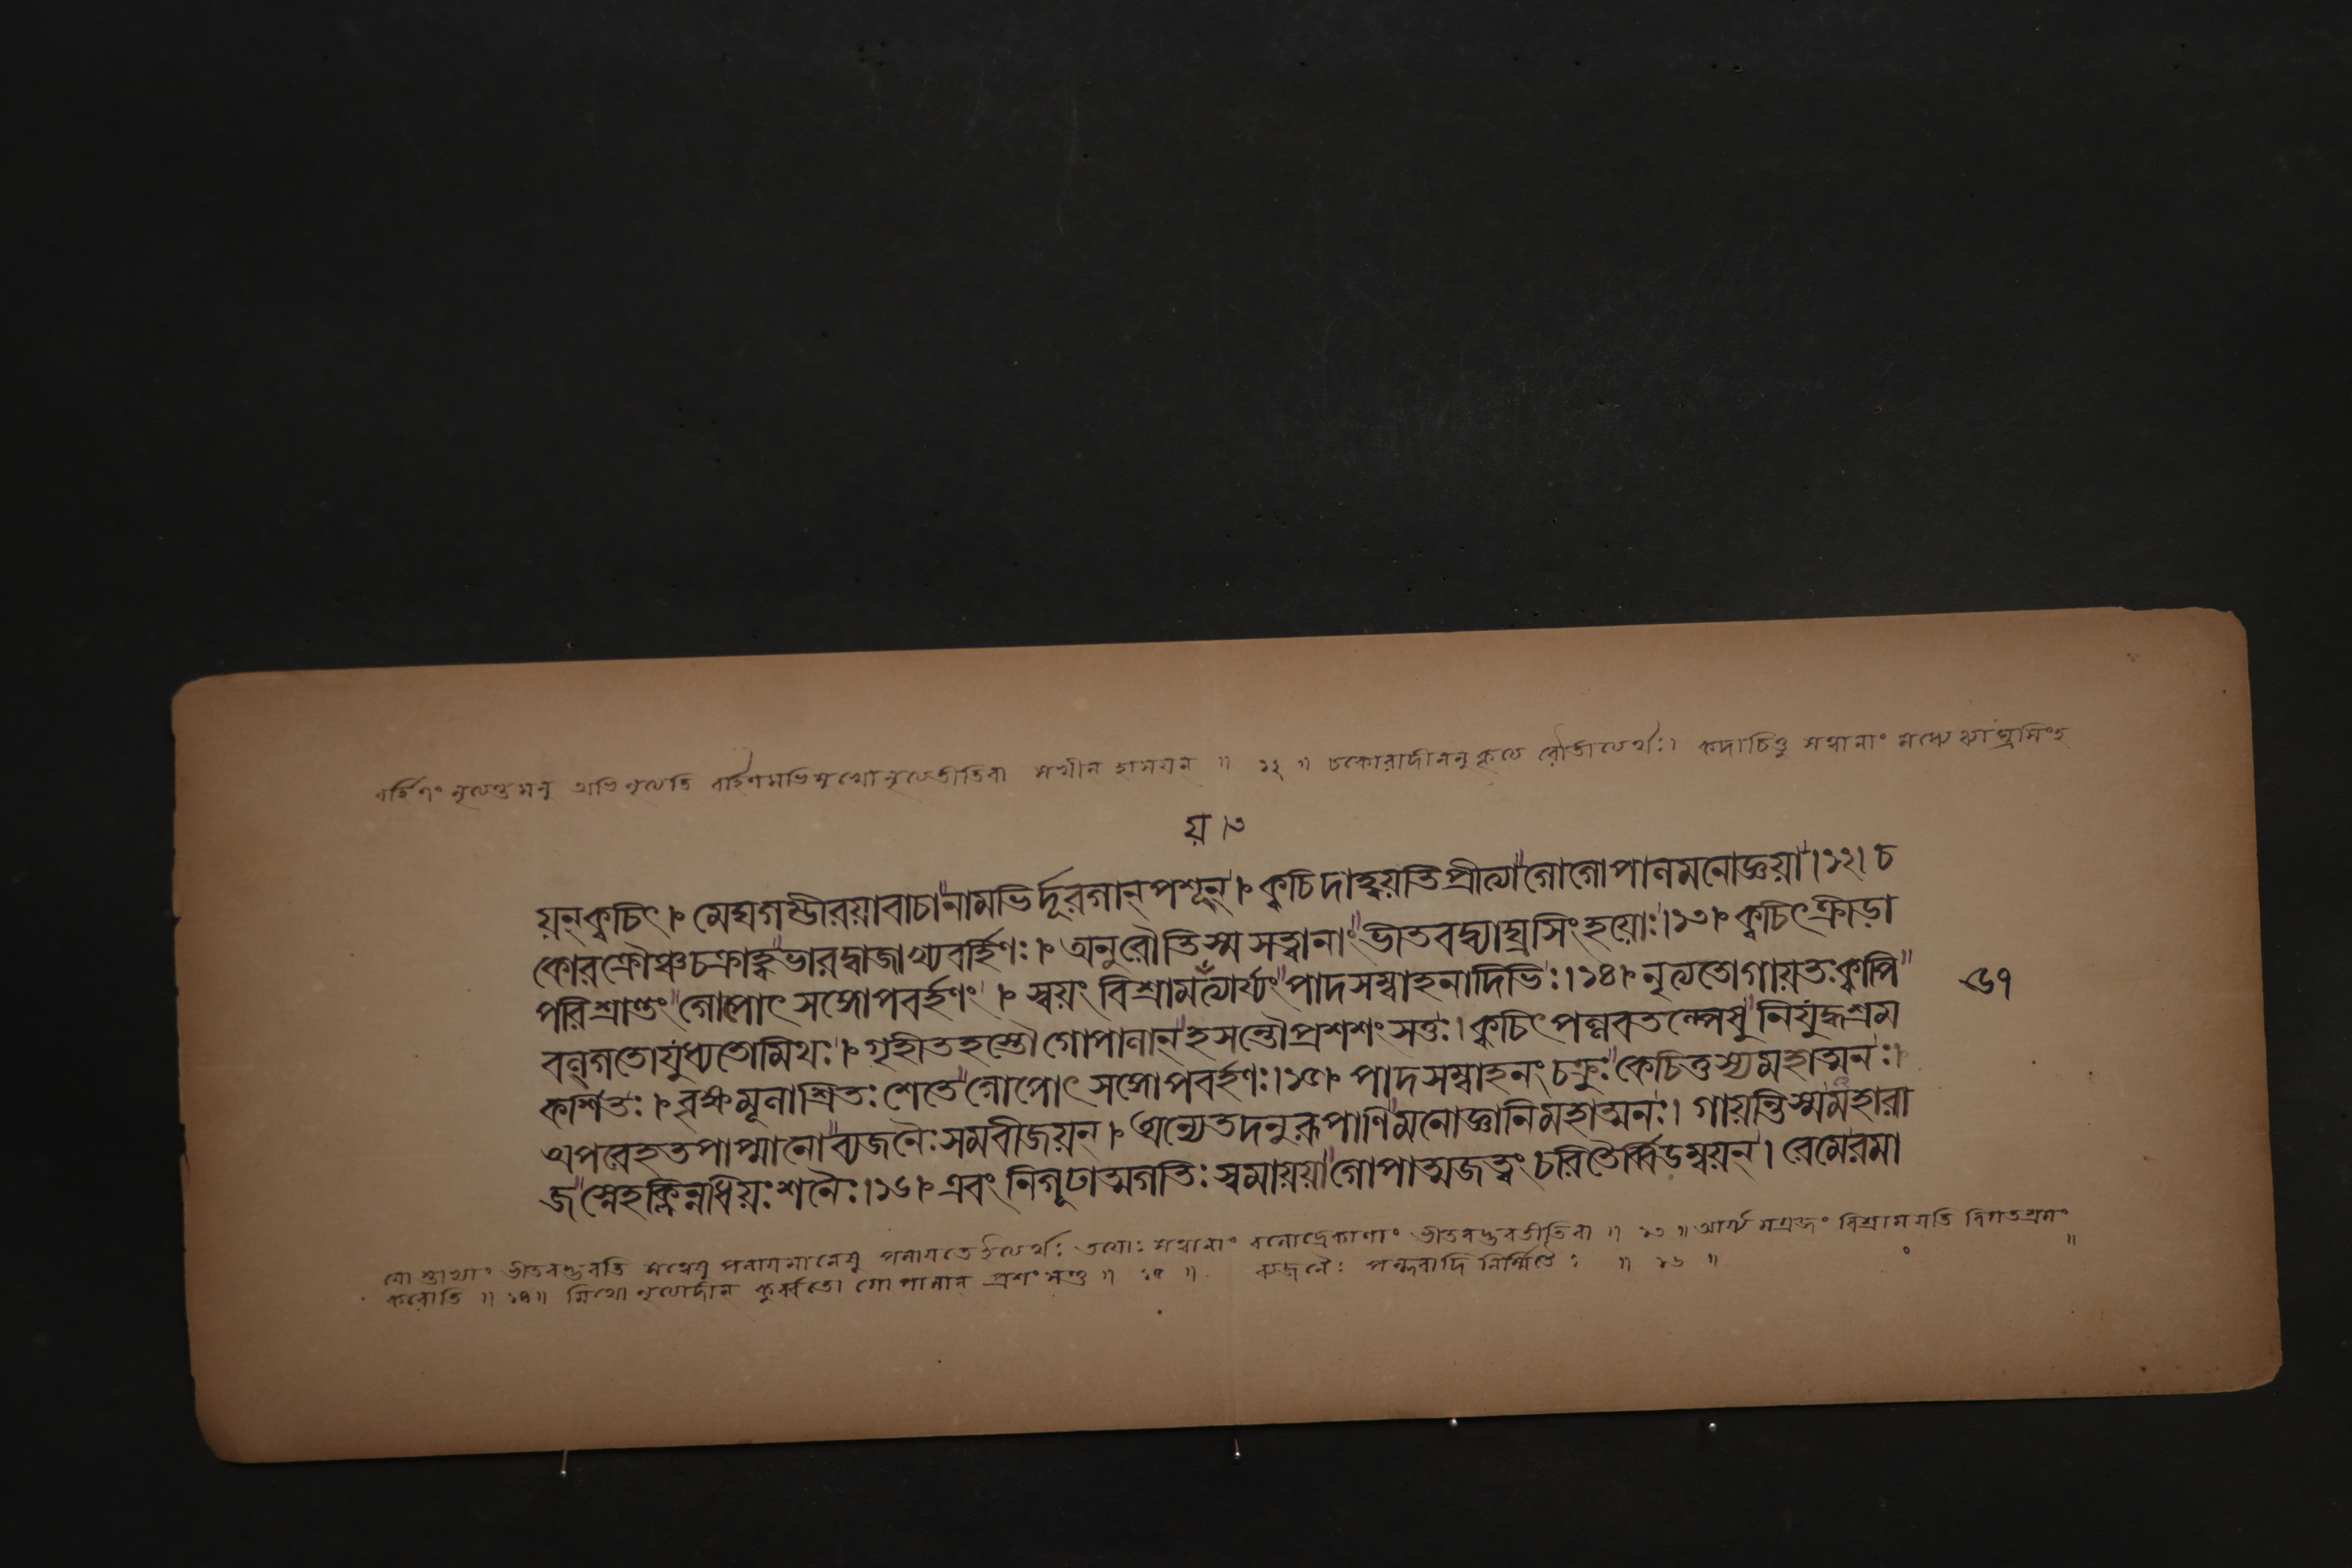 বর্হিণং নৃত্যন্তমনু অভিনৃত্যতি বর্হিণমভিমুখোনৃত্যতীতিবা সখীন হাসয়ন ॥ ১২ ॥ চকোরাদীননুকৃত্য রৌতীত্যর্থঃ। কদাচিত্তু সত্বানাং মধ্যে ব্যাঘ্রসিংহ
য় ।৩
য়ন্ ক্বচিৎ।• মেঘগম্ভীরয়াবাচানামভির্দূরগান্ পশূন্।• ক্বচিদাহ্বয়তিপ্রীত্যাগোগোপানমনোজ্ঞয়া।১২। চ
কোরক্রৌঞ্চচক্রাহ্বভারদ্বাজাংখ্যবর্হিণঃ।• অনুরৌতিস্ম সত্বানাং ভীতবদ্ব্যাঘ্রসিংহয়োঃ।১৩।• ক্বচিৎক্রীড়া
পরিশ্রান্তং গোপোৎসঙ্গোপবর্হণং।• স্বয়ং বিশ্রাময়ত্যার্য্যং পাদসম্বাহনাদিভিঃ।১৪।• নৃত্যতোগায়তঃক্বাপি
বল্গতোযুধ্যতোমিথঃ।• গৃহীতহস্তৌ গোপালান্ হসন্তৌপ্রশশংসতুঃ। ক্বচিৎ পল্লবতল্পেষু নিযুদ্ধশ্রম
কর্শিতঃ।• বৃক্ষমূলাশ্রিতঃ শেতেগোপোৎসঙ্গোপবর্হণঃ।১৫।• পাদসম্বাহনং চক্রুঃ কেচিত্তস্যমহাত্মনঃ।•
অপরেহতপাপ্মানোব্যজনৈঃসমবীজয়ন্।• অন্যেতদনুরূপাণিমনোজ্ঞানিমহাত্মনঃ। গায়ন্তিস্মমহারা
জস্নেহক্লিন্নধিয়ঃ শনৈঃ।১৬।• এবং নিগূঢাত্মগতিঃ স্বমায়য়াগোপাত্মজত্বং চরিতৈর্ব্বিডম্বয়ন্। রেমেরমা
৬৭
যোস্তাভ্যাং ভীতবদ্ভবতি সত্বেষু পলায়মানেষু পলায়তে ইত্যর্থঃ তয়োঃ সত্বানাং বলোদ্রেকাণাং ভীতবদ্ভবতীতিবা ॥ ১৩ ॥ আর্য্যমগ্রজং বিশ্রাময়তি বিগতশ্রমং
করোতি ॥ ১৪ ॥ মিথো নৃত্যাদীন কুর্ব্বতো গোপালান প্রশংসতু ॥ ১৫ ॥ ব্যজনৈঃ পল্লবাদি নির্ম্মিতৈঃ ॥ ১৬ ॥